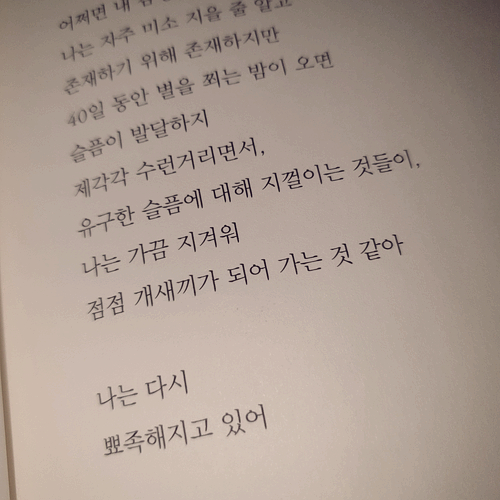 어쩌면 내
나는 자주 미소 지을 줄 알고
존재하기 위해 존재하지만
40일 동안 별을 쬐는 밤이 오면
슬픔이 발달하지
제각각 수런거리면서,
유구한 슬픔에 대해 지껄이는 것들이,
나는 가끔 지겨워
점점 개새끼가 되어 가는 것 같아
나는 다시
뾰족해지고 있어